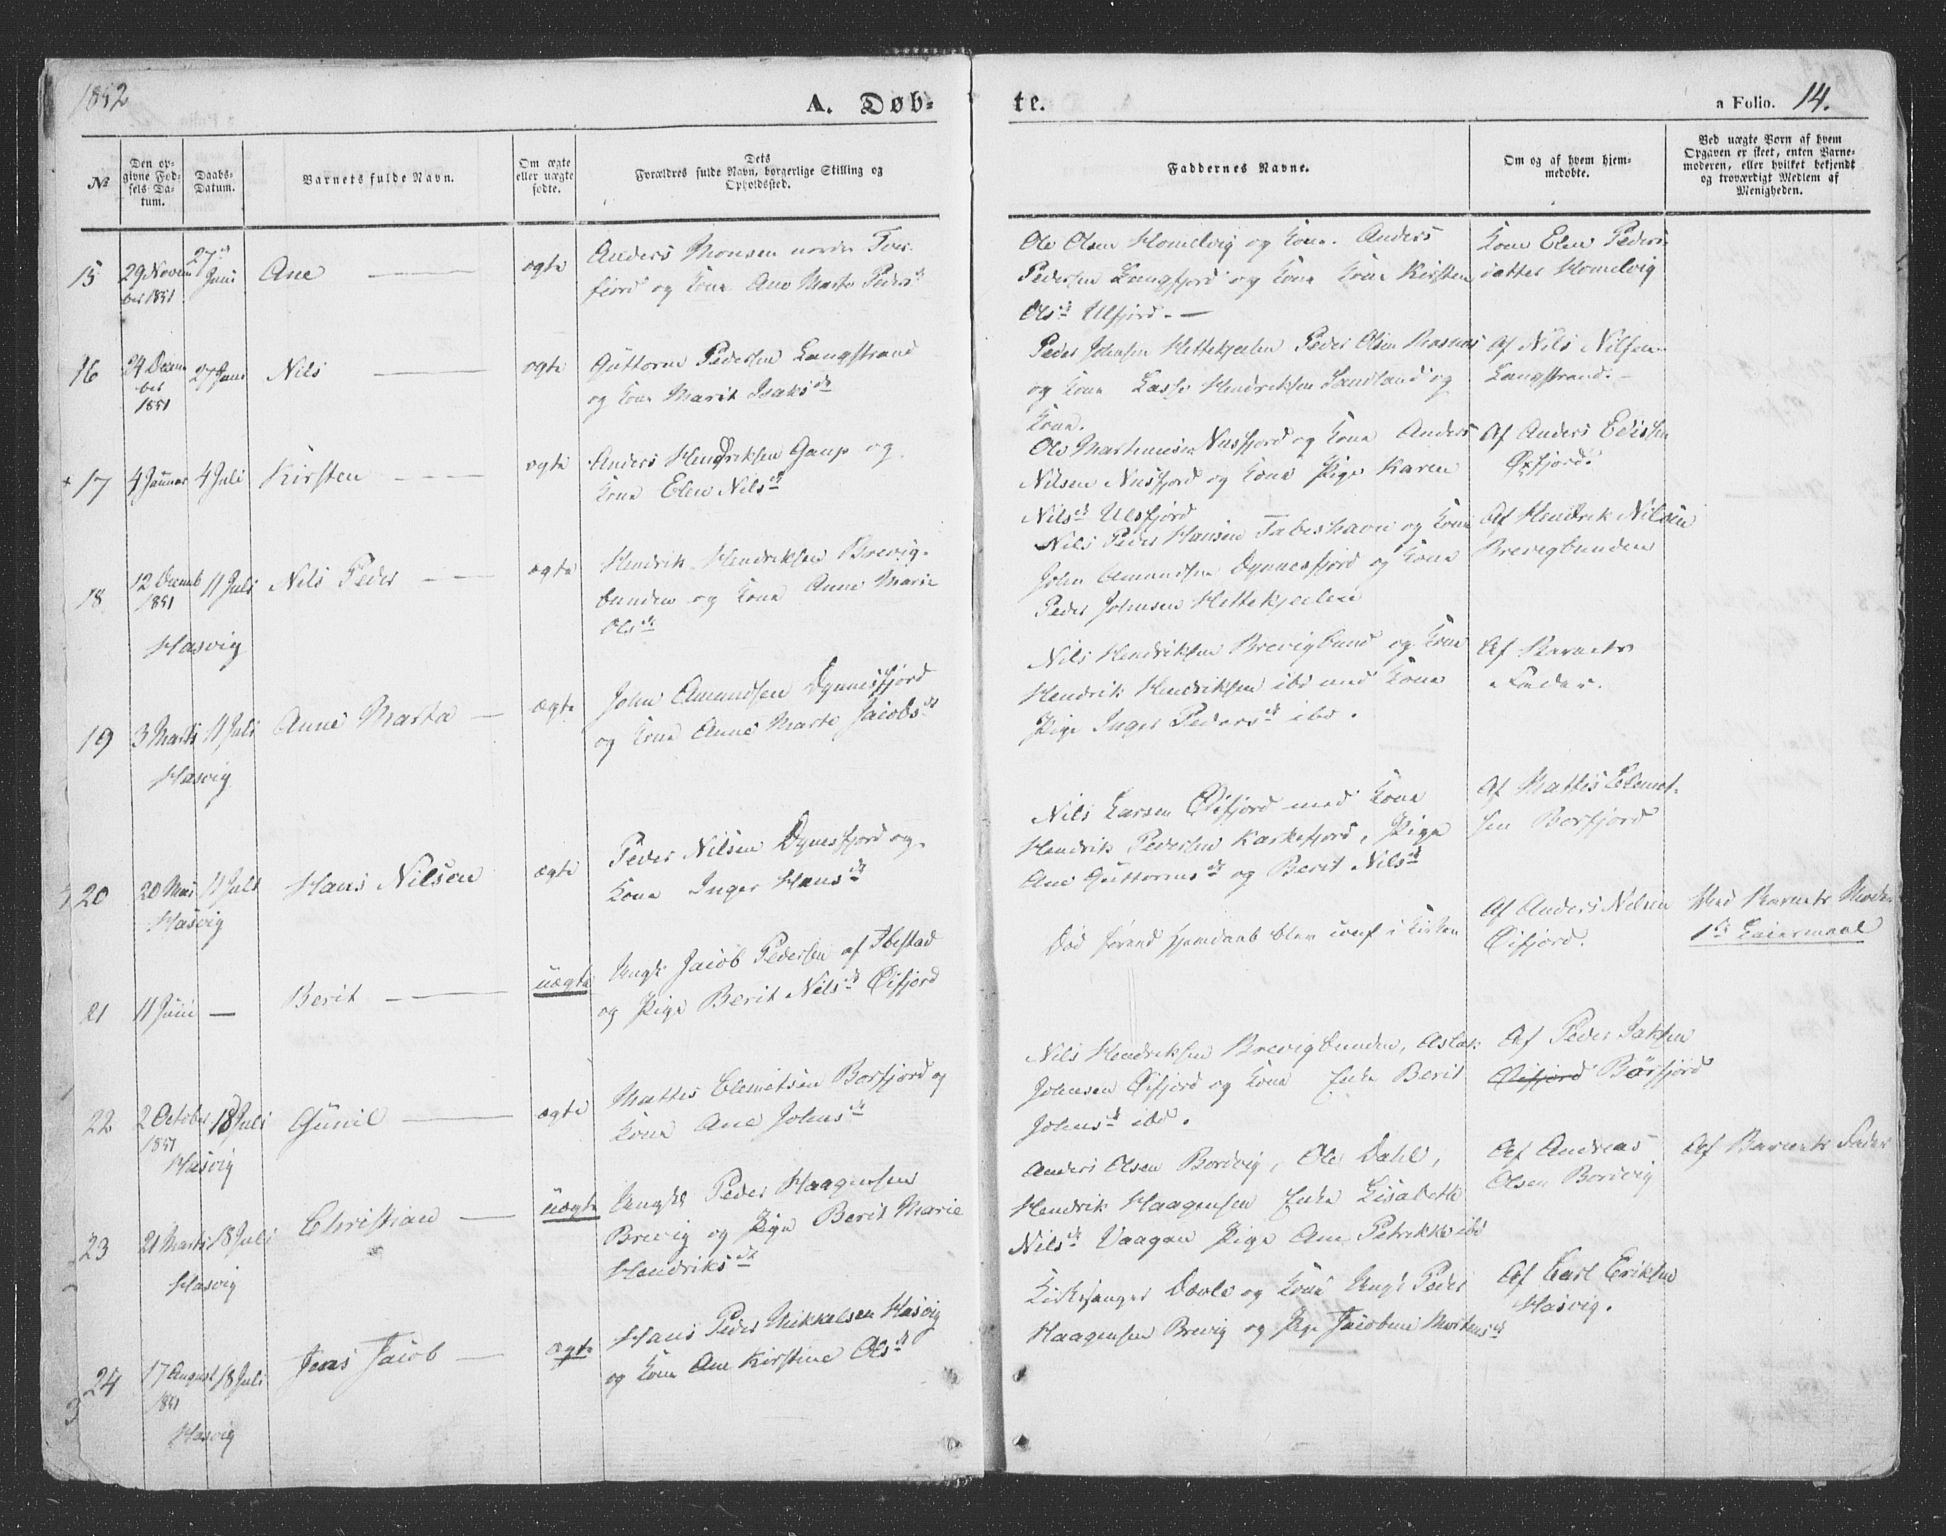 1852
A. Døb-
te.
a Folio. 14.
№
Den op-
givne Fød-
sels Da-
tum.
Daabs-
Datum.
Barnets fulde Navn.
Om ægte
eller uægte
fødte.
Dets
Forældres fulde Navn, borgerlige Stilling og
Opholdsted.
Faddernes Navne.
Om og af hvem hjem-
medøbte.
Ved uægte Børn af hvem
Opgaven er skeet, enten Barne-
moderen, eller hvilket bekjendt
og troværdigt Medlem af
Menigheden.
15
29 Novem
ber 1851
27de
Juni
Ane
ægte
Anders Monsen nordre
fjord og Kone Ane Marte Pedersdr
Ole Olsen Homelvig og Kone. Anders
Pedersen Langfjord og Kone Kirsten
Olsdr Ulfjord. —
Kone Elen Peders
datter Homelvig
16
24 Decem
ber
1851
27 Juni
Nils
ægte
Guttorm Pedersen Langstrand
og Kone Marit Isaksdr
Peder Johnsen Hettekjeilen Peder Olsen
og Kone Lasse Hendriksen Sandland og
Kone.
Af Nils Nilsen
Langstrand. —
17
4 Januar
4 Juli
Kirsten
ægte
Anders Hendriksen Gaup og
Kone Elen Nilsdr
Ole Martinusen Nusfjord og Kone Anders
Nilsen Nusfjord og Kone Pige Karen
Nilsdr Ulsfjord
Af Anders
Øxfjord.
18
12 Decemb
1851
Hasvig
11 Juli
Nils Peder
ægte
Hendrik Hendriksen Brevig-
bunden og Kone Anne Marie
Olsdr
Nils Peder Hansen og Kone
John Amundsen Dynnesfjord og Kone
Peder Johnsen Hettekjeilen
Af Hendrik Nilsen
Brevigbunden
19
3 Marts
Hasvig
11 Juli
Anne Marta
ægte
John Amundsen Dynnesfjord
og Kone Anne Marte Jacobsdr
Nils Hendriksen Brevigbund og Kone
Hendrik Hendriksen ibd med Kone
Pige Inger Pedersdr ibd.
Af Barnets
Fader.
20
20 Mai
Hasvig
11 Juli
Hans Nilsen
ægte
Peder Nilsen Dynesfjord og
Kone Inger Hansdr
Nils Larsen Øifjord med Kone
Hendrik Pedersen Karkefjord, Pige
Ane Guttormsdr og Berit Nilsdr
Af Mattis Clemet-
sen Borfjord
21
11 Juni
—
Berit
uægte
Ungk Jacob Pedersen af Ibestad
og Pige Berit Nilsdr Øifjord
Død forend hjemdaab blev conf i Kirken
Af Anders Nilsen
Øifjord.
Ved Barnets Moder
1ste Leiermaal
22
2 October
1851
Hasvig
18 Juli
Gunil
ægte
Mattis Clemetsen Borfjord og
Kone Ane Johnsdr
Nils Hendriksen Brevigbunden, Aslak
Johnsen Øifjord og Kone Enke Berit
Johnsdr ibd.
Af Peder Isaksen
Øifjord Børfjord
23
21 Marts
Hasvig
18 Juli
Christian
uægte
Ungk Peder Haagensen
Brevig og Pige Berit Marie
Hendriksdr
Anders Olsen Bordvig, Ole Dahl,
Hendrik Haagensen Enke Lisabeth
Nilsdr Vaagan Pige Ane Petrikke ibd
Af Andreas
Olsen Bordvig
Af Barnets Fader
24
17 August
1851
Hasvig
18 Juli
Jens Jacob
ægte
Hans Peder Mikkelsen Hasvig
og Kone Ane Kirstine Olsdr
Kirkesanger og Kone Ungk Peder
Haagensen Brevig og Pige Jacobine Mortensdr
Af Carl Eriksen
Hasvig.